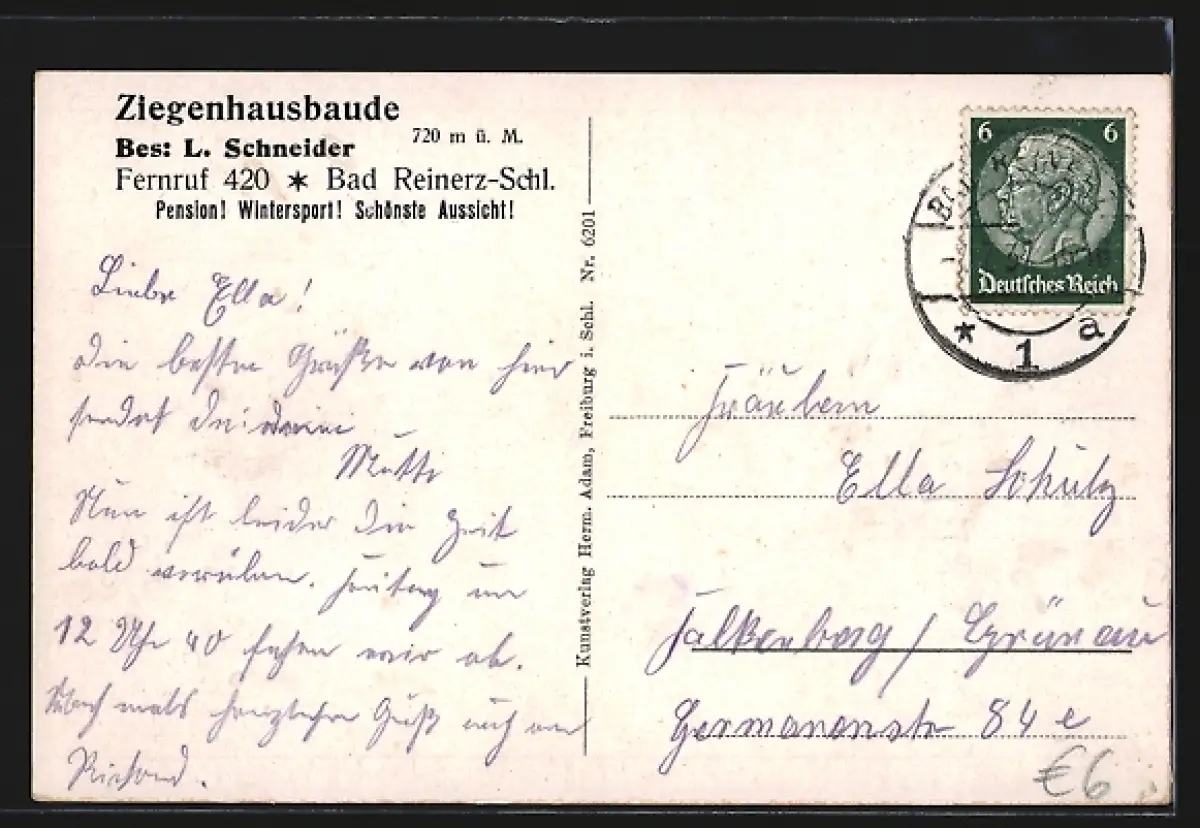 Ziegenhausbaude
Bes: L. Schneider
720 m ü. M.
Fernruf 420 * Bad Reinerz-Schl.
Pension! Wintersport! Schönste Aussicht!
Liebe Ella!
die besten Grüße von hier
sendet Dir deine
Mutti
Nun ist leider die Zeit
bald vorüber. Freitag um
12 Uhr 40 fahren wir ab.
Noch mals herzlichen Gruß auch an
Richard.
Kunstverlag Herm. Adam, Freiburg i. Schl. Nr. 6201
6 6
Deutsches Reich
* 1 a
Fräulein
Ella Schulz
Falkenberg / Grünau
Germanenstr 84 e
€6